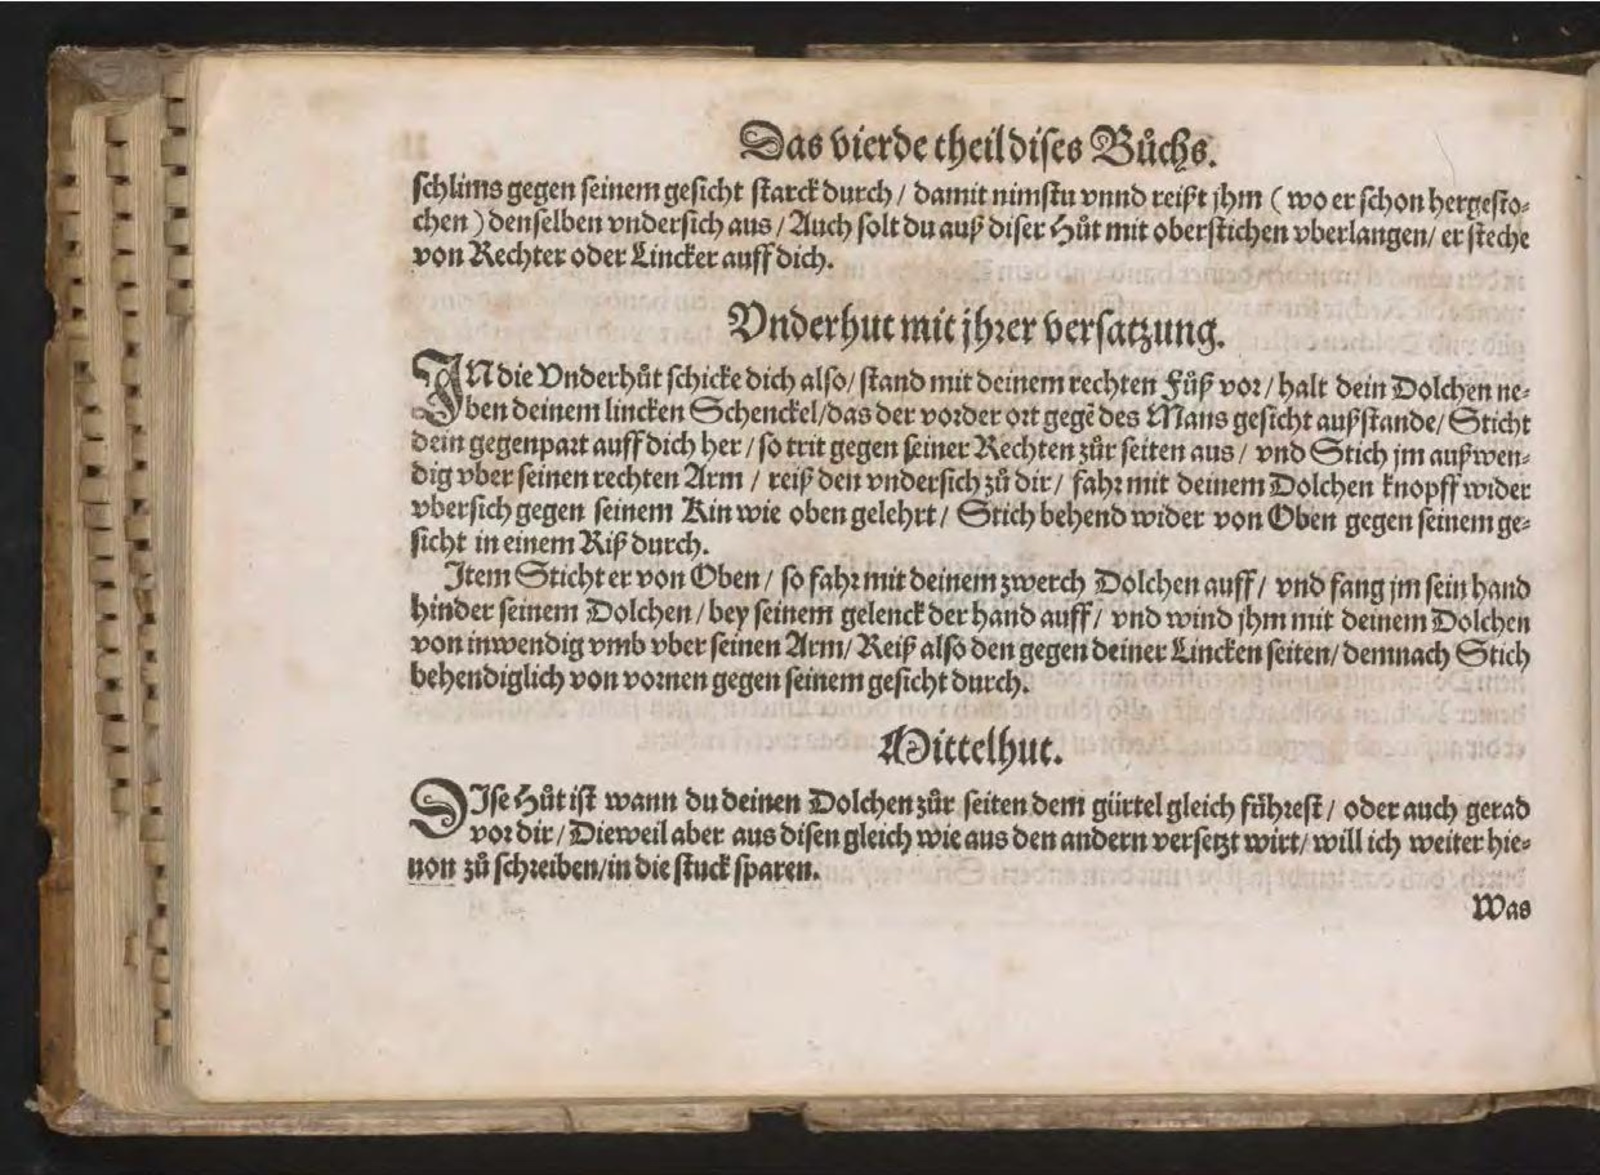 Das vierde theil dises Bůchs.
schlims gegen seinem gesicht starck durch / damit nimstu vnnd reißt jhm ( wo er schon hergesto⸗
chen ) denselben vndersich aus / Auch solt du auß diser Hůt mit oberstichen vberlangen / er steche
von Rechter oder Lincker auff dich.
Vnderhut mit jhrer versatzung.
IN die Vnderhůt schicke dich also / stand mit deinem rechten Fůß vor / halt dein Dolchen ne⸗
ben deinem lincken Schenckel / das der vorder ort gegẽ des Mans gesicht außstande / Sticht
dein gegenpart auff dich her / so trit gegen seiner Rechten zůr seiten aus / vnd Stich jm außwen⸗
dig vber seinen rechten Arm / reiß den vndersich zů dir / fahr mit deinem Dolchen knopff wider
vbersich gegen seinem Kin wie oben gelehrt / Stich behend wider von Oben gegen seinem ge⸗
sicht in einem Riß durch.
Item Sticht er von Oben / so fahr mit deinem zwerch Dolchen auff / vnd fang jm sein hand
hinder seinem Dolchen / bey seinem gelenck der hand auff / vnd wind jhm mit deinem Dolchen
von inwendig vmb vber seinen Arm / Reiß also den gegen deiner Lincken seiten / demnach Stich
behendiglich von vornen gegen seinem gesicht durch.
Mittelhut.
DIse Hůt ist wann du deinen Dolchen zůr seiten dem gürtel gleich führest / oder auch gerad
vor dir / Dieweil aber aus disen gleich wie aus den andern versetzt wirt / will ich weiter hie⸗
uon zů schreiben / in die stuck sparen.
Was